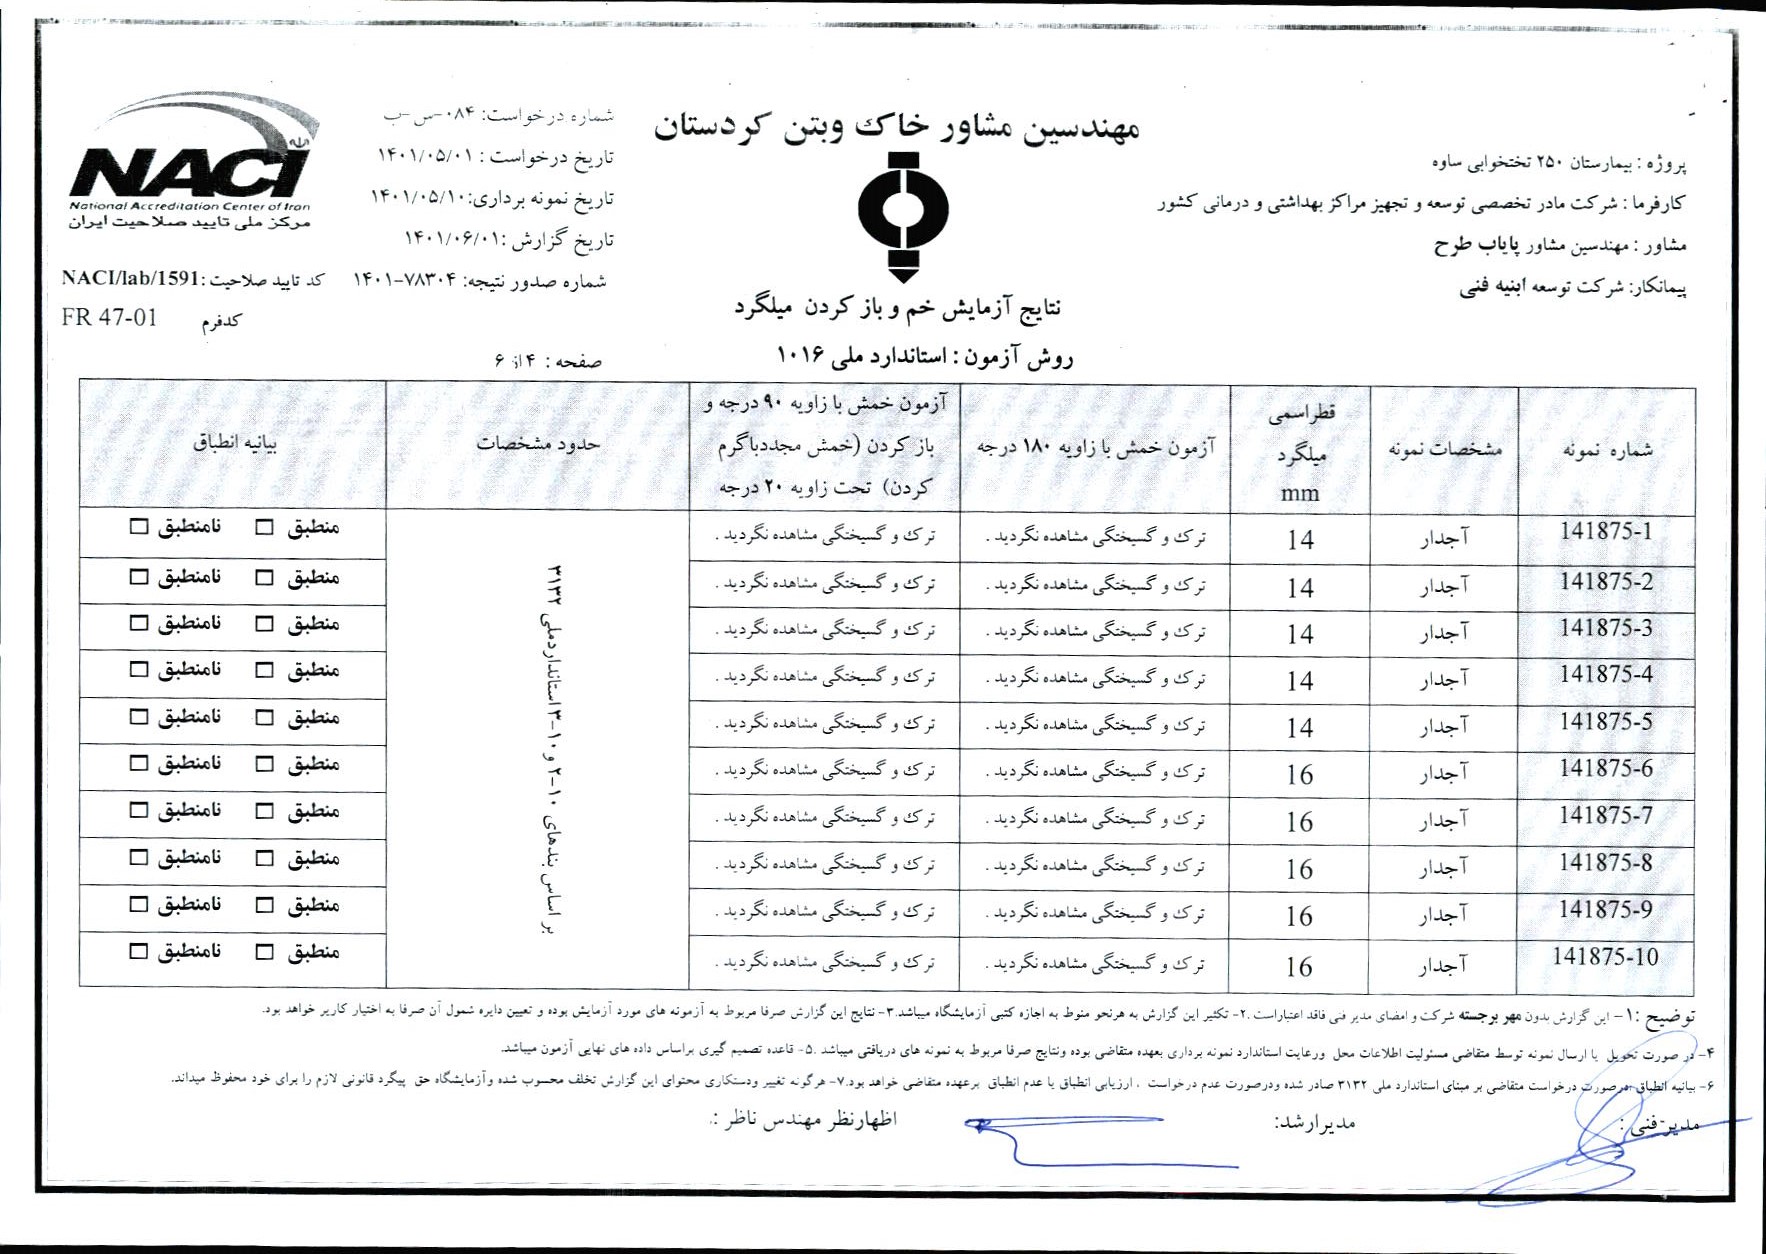 مهندسین مشاور خاک وبتن کردستان
پروژه : بیمارستان ۲۵۰ تختخوابی ساوه
کارفرما : شرکت مادر تخصصی توسعه و تجهیز مراکز بهداشتی و درمانی کشور
مشاور : مهندسین مشاور پایاب طرح
پیمانکار: شرکت توسعه ابنیه فنی
شماره درخواست: ۰۸۴-س-ب
تاریخ درخواست : ۱۴۰۱/۰۵/۰۱
تاریخ نمونه برداری:۱۴۰۱/۰۵/۱۰
تاریخ گزارش :۱۴۰۱/۰۶/۰۱
شماره صدور نتیجه: ۷۸۳۰۴-۱۴۰۱
NACI
National Accreditation Center of Iran
مرکز ملی تایید صلاحیت ایران
کد تایید صلاحیت :NACI/lab/1591
کدفرم FR 47-01
نتایج آزمایش خم و باز کردن میلگرد
روش آزمون : استاندارد ملی ۱۰۱۶
صفحه : ۴ از ۶
شماره نمونه | مشخصات نمونه | قطراسمی میلگرد mm | آزمون خمش با زاویه ۱۸۰ درجه | آزمون خمش با زاویه ۹۰ درجه و باز کردن (خمش مجددباگرم کردن) تحت زاویه ۲۰ درجه | حدود مشخصات | بیانیه انطباق
141875-1 | آجدار | 14 | ترک و گسیختگی مشاهده نگردید . | ترک و گسیختگی مشاهده نگردید . | منطبق □ نامنطبق □
141875-2 | آجدار | 14 | ترک و گسیختگی مشاهده نگردید . | ترک و گسیختگی مشاهده نگردید . | منطبق □ نامنطبق □
141875-3 | آجدار | 14 | ترک و گسیختگی مشاهده نگردید . | ترک و گسیختگی مشاهده نگردید . | منطبق □ نامنطبق □
141875-4 | آجدار | 14 | ترک و گسیختگی مشاهده نگردید . | ترک و گسیختگی مشاهده نگردید . | منطبق □ نامنطبق □
141875-5 | آجدار | 14 | ترک و گسیختگی مشاهده نگردید . | ترک و گسیختگی مشاهده نگردید . | منطبق □ نامنطبق □
141875-6 | آجدار | 16 | ترک و گسیختگی مشاهده نگردید . | ترک و گسیختگی مشاهده نگردید . | منطبق □ نامنطبق □
141875-7 | آجدار | 16 | ترک و گسیختگی مشاهده نگردید . | ترک و گسیختگی مشاهده نگردید . | منطبق □ نامنطبق □
141875-8 | آجدار | 16 | ترک و گسیختگی مشاهده نگردید . | ترک و گسیختگی مشاهده نگردید . | منطبق □ نامنطبق □
141875-9 | آجدار | 16 | ترک و گسیختگی مشاهده نگردید . | ترک و گسیختگی مشاهده نگردید . | منطبق □ نامنطبق □
141875-10 | آجدار | 16 | ترک و گسیختگی مشاهده نگردید . | ترک و گسیختگی مشاهده نگردید . | منطبق □ نامنطبق □
بر اساس بندهای ۱۰-۲ و ۱۰-۳ استانداردملی ۳۱۳۲
توضیح :۱- این گزارش بدون مهر برجسته شرکت و امضای مدیر فنی فاقد اعتباراست .۲- تکثیر این گزارش به هرنحو منوط به اجازه کتبی آزمایشگاه میباشد.۳- نتایج این گزارش صرفا مربوط به آزمونه های مورد آزمایش بوده و تعیین دایره شمول آن صرفا به اختیار کاربر خواهد بود.
۴- در صورت تحویل یا ارسال نمونه توسط متقاضی مسئولیت اطلاعات محل ورعایت استاندارد نمونه برداری بعهده متقاضی بوده ونتایج صرفا مربوط به نمونه های دریافتی میباشد .۵- قاعده تصمیم گیری براساس داده های نهایی آزمون میباشد.
۶- بیانیه انطباق درصورت درخواست متقاضی بر مبنای استاندارد ملی ۳۱۳۲ صادر شده ودرصورت عدم درخواست ، ارزیابی انطباق یا عدم انطباق برعهده متقاضی خواهد بود.۷- هرگونه تغییر ودستکاری محتوای این گزارش تخلف محسوب شده وآزمایشگاه حق پیگرد قانونی لازم را برای خود محفوظ میداند.
مدیر فنی : مدیرارشد: اظهارنظر مهندس ناظر :.